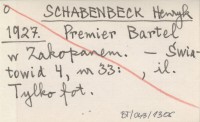 SCHABENBECK Henryk
1927. Premier Bartel
w Zakopanem. — Świa-
towid 4, nr 33: , il.
Tylko fot.